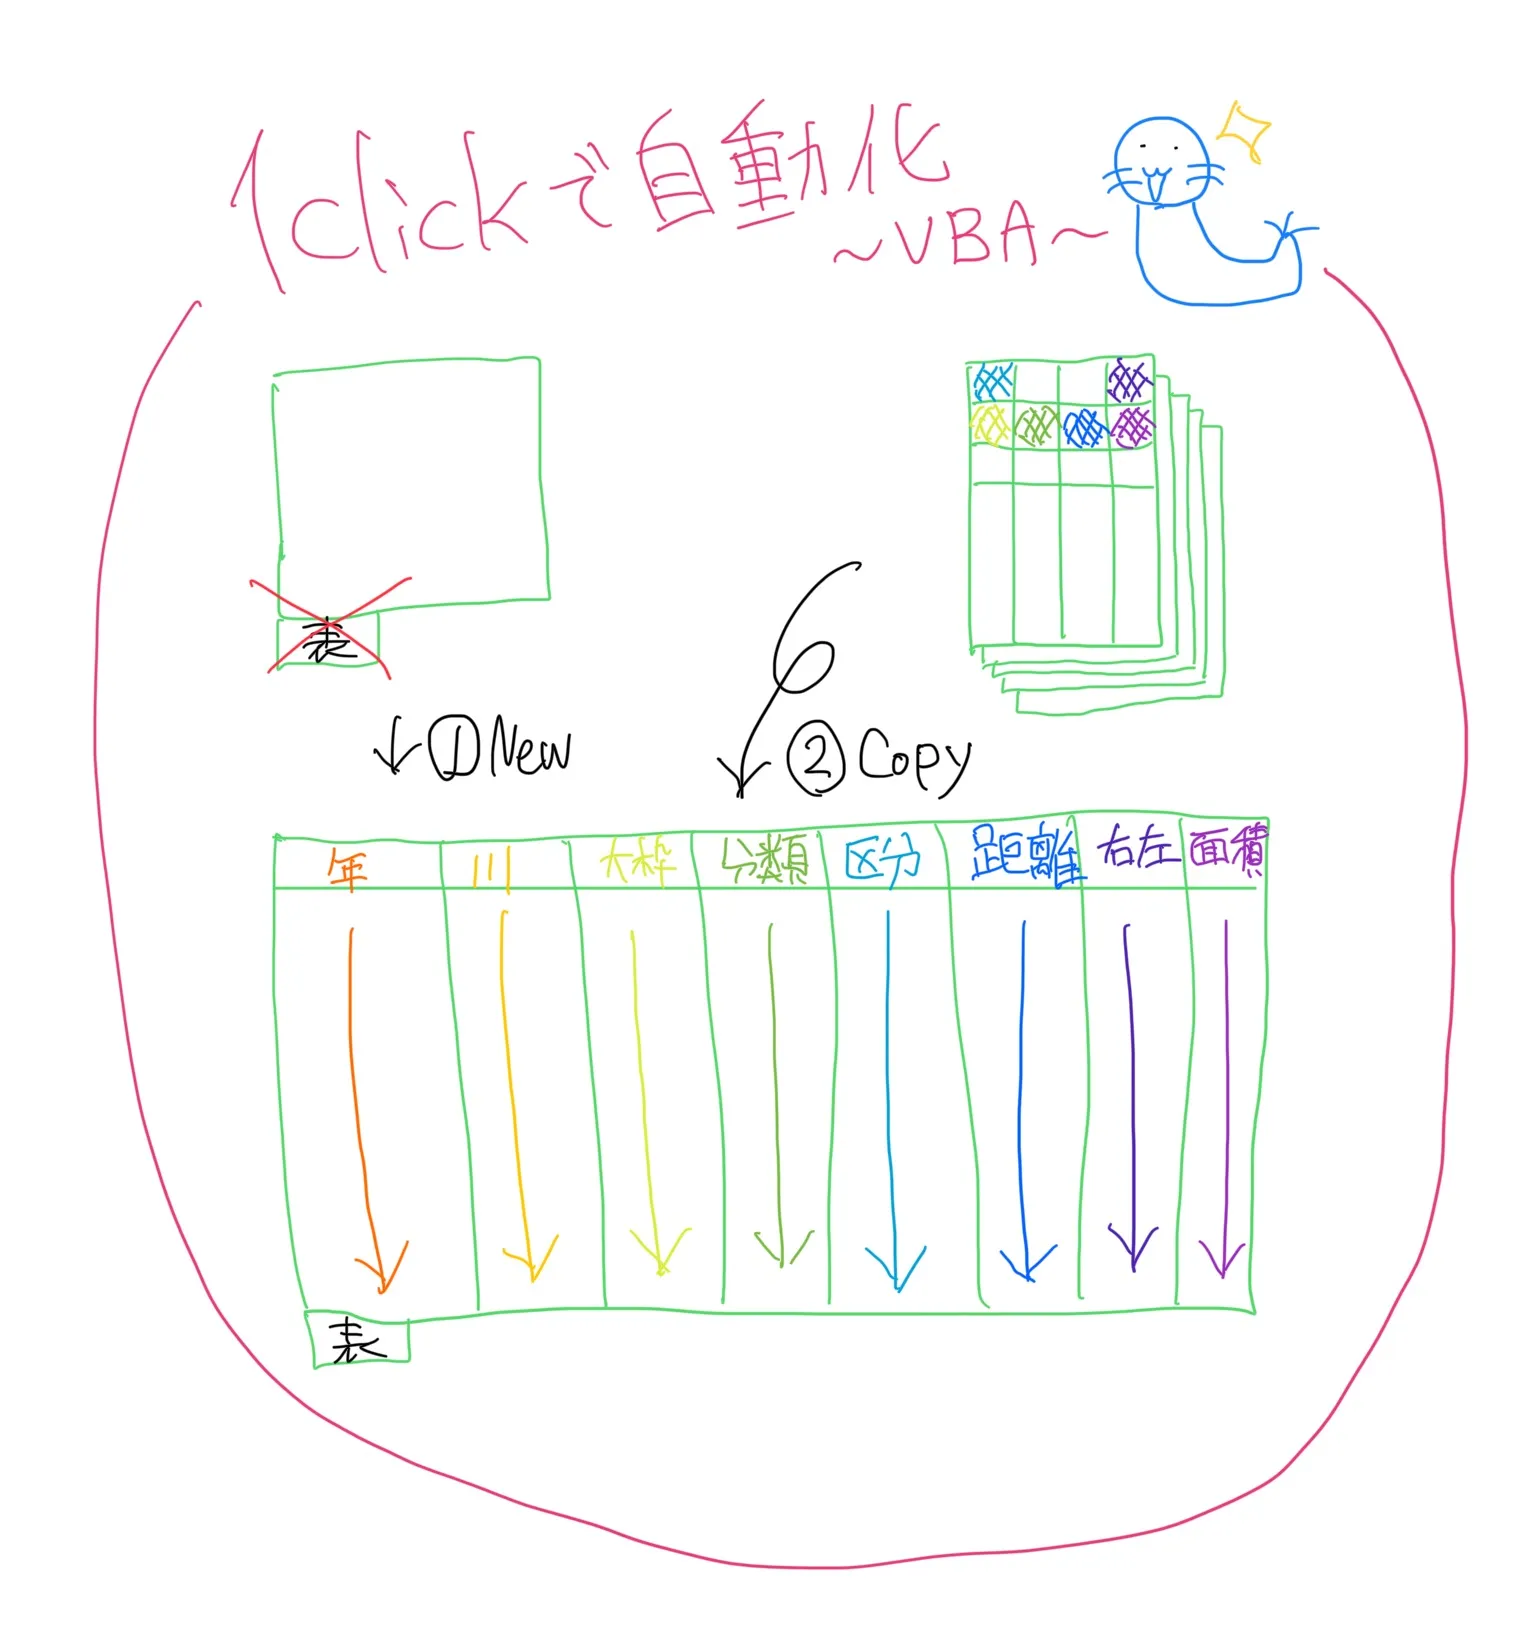 1clickで自動化
～VBA～
表
↓①New
②Copy
年 川 大枠 分類 区分 距離 右左 面積
表